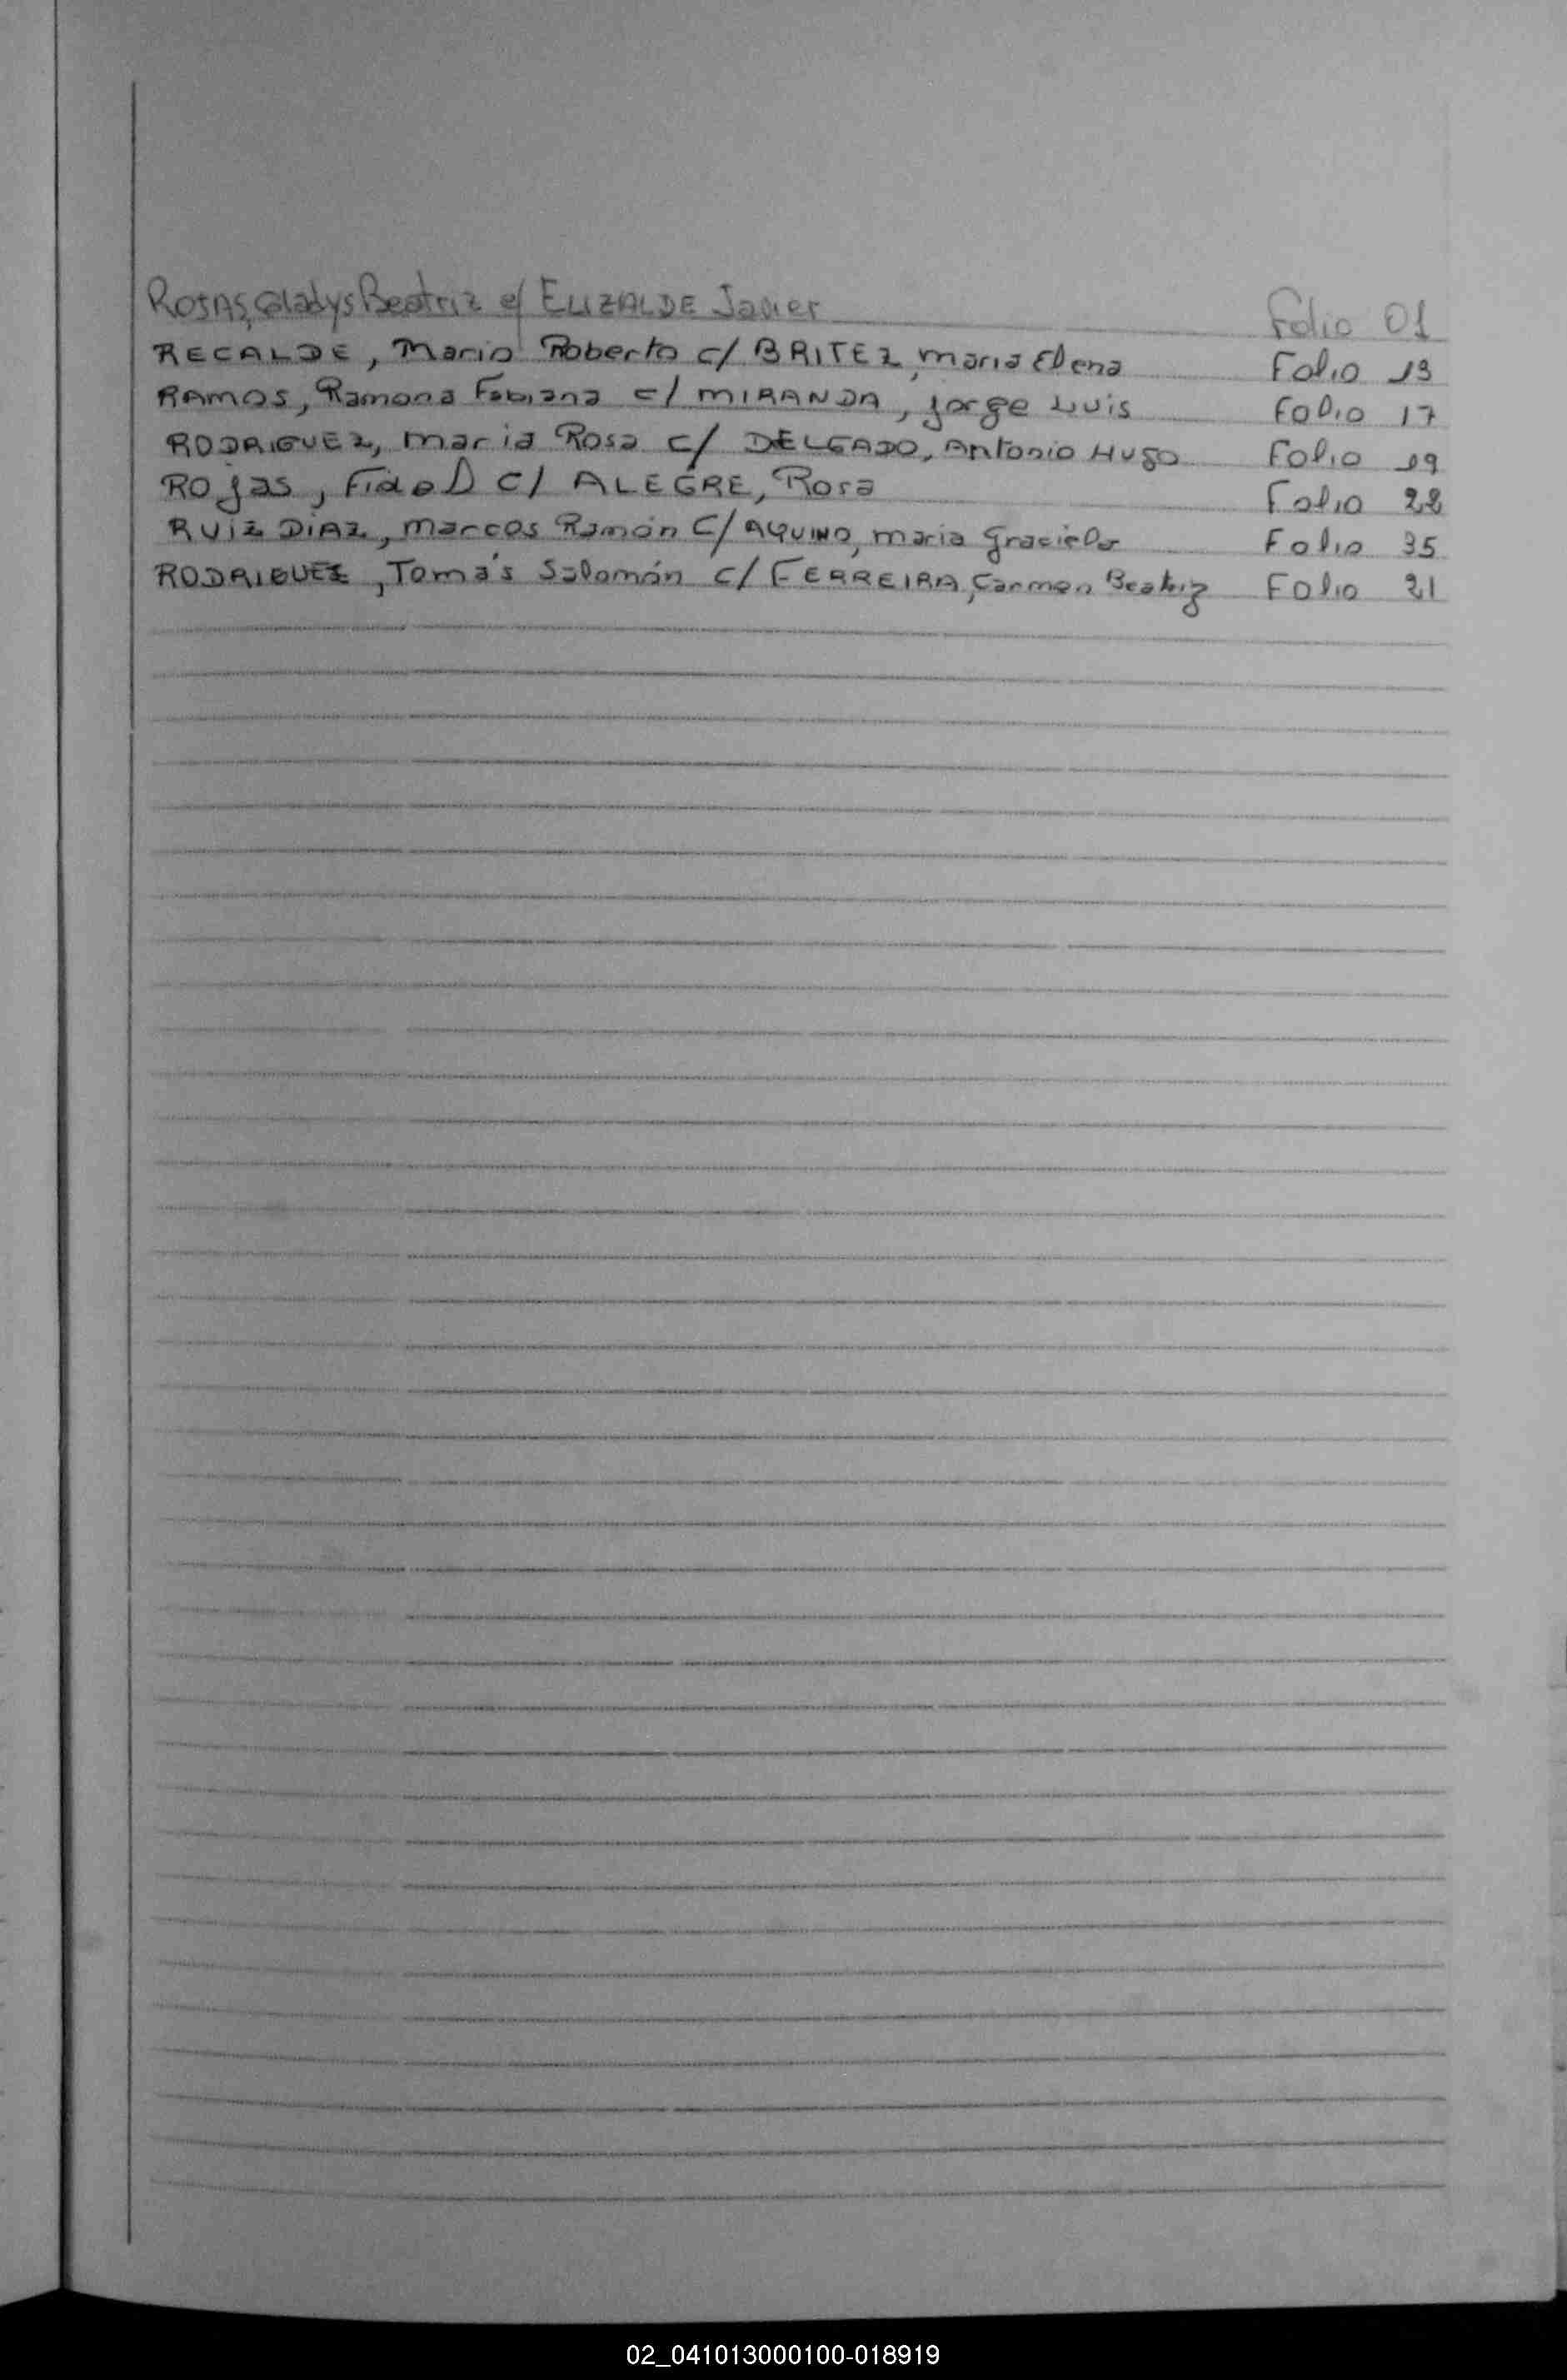 ROJAS, Gladys Beatriz c/ ELIZALDE Javier Folio 01
RECALDE, Mario Roberto c/ BRITEZ, Maria Elena Folio 13
RAMOS, Ramona Fabiana c/ MIRANDA, Jorge Luis Folio 17
RODRIGUEZ, Maria Rosa c/ DELGADO, Antonio Hugo Folio 19
ROJAS, Fidel c/ ALEGRE, Rosa Folio 22
RUIZ DIAZ, Marcos Ramón c/ AQUINO, Maria Graciela Folio 35
RODRIGUEZ, Tomás Salomón c/ FERREIRA, Carmen Beatriz Folio 21
02_041013000100-018919